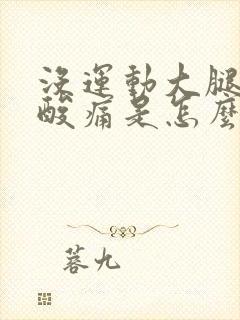 沒運動大腿
酸痛是怎麼
蓉九